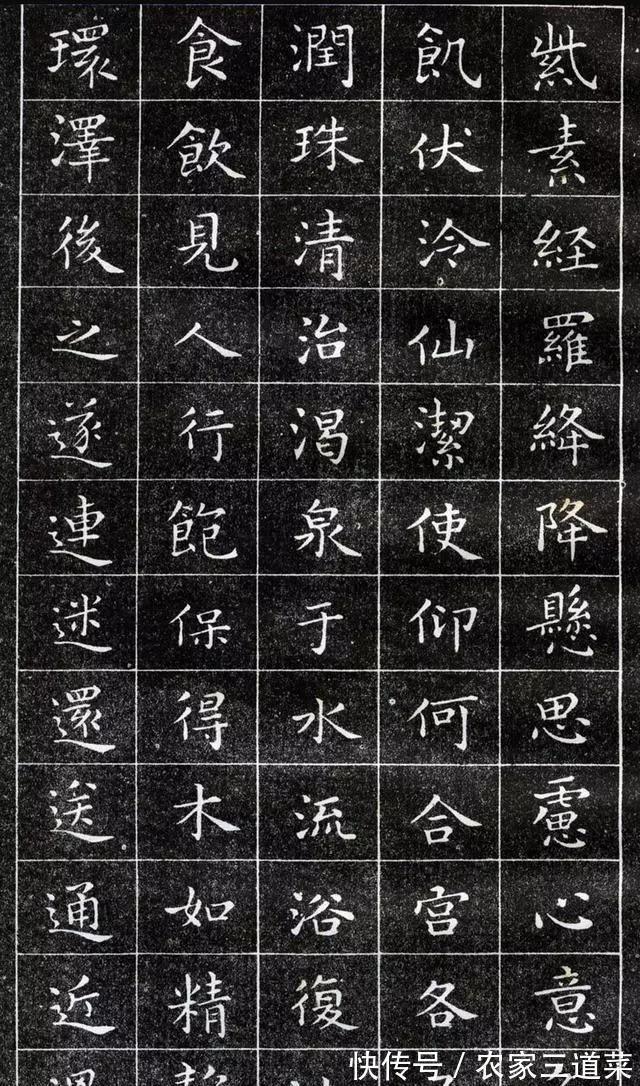 紫素経羅絳降懸思慮心意
飢伏泠仙潔使仰何合宮各
潤珠清治渴泉于水流浴復
食飲見人行飽保得木如精
環澤後之遂連迷還送通近
快传号/农家三道菜